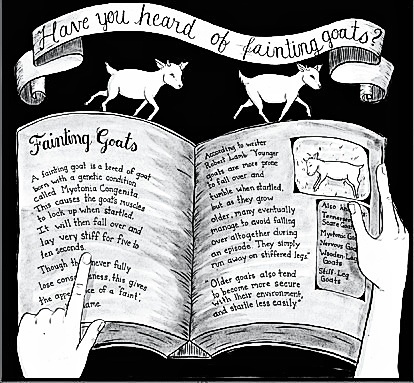 Have you heard of fainting goats?
Fainting Goats
A fainting goat is a breed of goat
born with a genetic condition
called Myotonia Congenita
This causes the goats muscles
to lock up when startled.
It will then fall over and
lay very stiff for five to
ten seconds.
Though they never fully
lose consciousness, this gives
the appearance of a 'faint',
name.
According to writer
Robert Lamb "Younger
goats are more prone
to fall over and
tumble when startled,
but as they grow
older, many eventually
manage to avoid falling
over altogether during
an episode. They simply
run away on stiffened legs"
"Older goats also tend
to become more secure
with their environment,
and startle less easily"
Also
Tennessee
Scare Goats
Myotonic
Nervous Goats
Wooden-Leg
Goats
Stiff-Leg
Goats